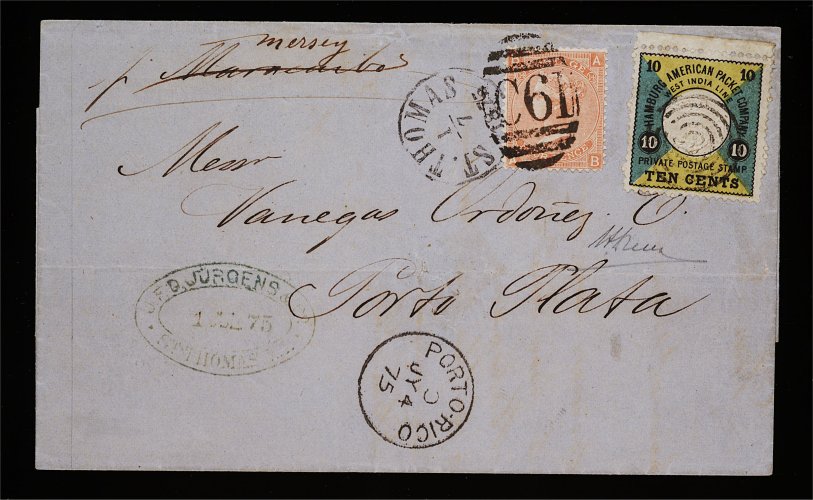 mersey
p Maracaibo
ST. THOMAS
C61
A
B
10 10
HAMBURG AMERICAN PACKET COMPANY
WEST INDIA LINE
10 10
PRIVATE POSTAGE STAMP
TEN CENTS
Messrs
Vanegas Ordoñes C.
Porto Plata
J.F.D. JÜRGENS
1 JUL 75
ST THOMAS
PORTO-RICO
C
JY 4
75